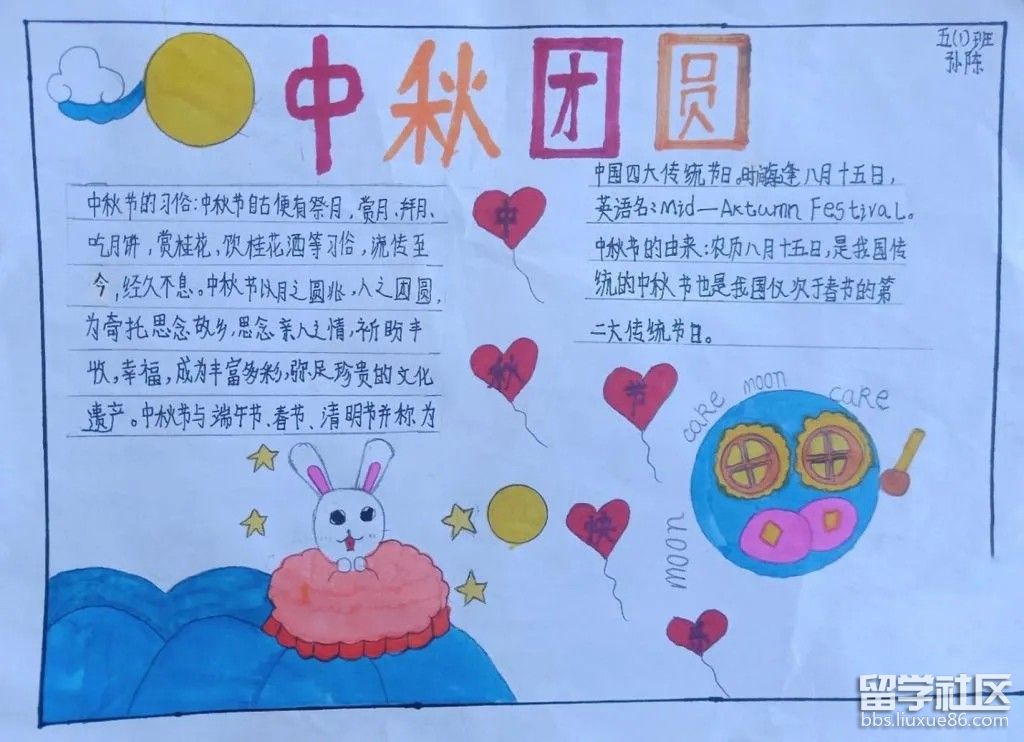 五(1)班
孙陈
中秋团圆
中秋节的习俗:中秋节自古便有祭月,赏月、拜月、
吃月饼,赏桂花、饮桂花酒等习俗,流传至
今,经久不息。中秋节以月之圆兆,人之团圆,
为寄托思念故乡,思念亲人之情,祈盼丰
收,幸福,成为丰富多彩,弥足珍贵的文化
遗产。中秋节与端午节、春节、清明节并称为
中国四大传统节日。时逢八月十五日,
英语名:Mid—Autumn Festival。
中秋节的由来:农历八月十五日,是我国传
统的中秋节也是我国仅次于春节的第
二大传统节日。
中
秋
节
快
乐
cake moon cake
moon
留学社区
bbs.liuxue86.com